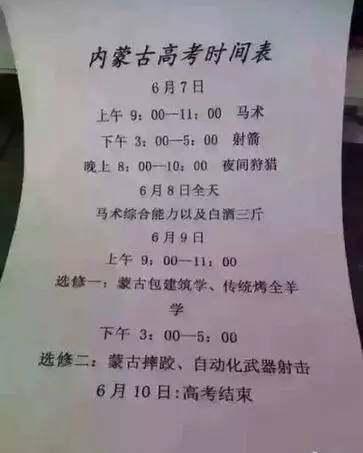 内蒙古高考时间表
6月7日
上午 9：00—11：00 马术
下午 3：00—5：00 射箭
晚上 8：00—10：00 夜间狩猎
6月8日全天
马术综合能力以及白酒三斤
6月9日
上午 9：00—11：00
选修一：蒙古包建筑学、传统烤全羊
学
下午 3：00—5：00
选修二：蒙古摔跤、自动化武器射击
6月10日:高考结束